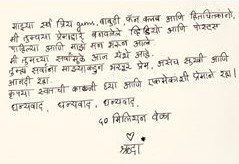 माझ्या सर्व प्रिय gems, बाबुडी, फॅन क्लब आणि हितचिंतकांनो,
मी तुमच्या प्रेमाद्वारे बनवलेले व्हिडिओ आणि पोस्ट्स
पाहिल्या आणि माझं मन भरून आलं.
मी तुमच्या सर्वांमुळे आज येथे आहे.
तुम्हा सर्वांना माझ्याकडून भरपूर प्रेम, असेच सुखी आणि
आनंदी रहा.
कृपया स्वतःची काळजी घ्या आणि एकमेकांशी प्रेमाने रहा!
धन्यवाद, धन्यवाद, धन्यवाद,
५० मिलियन वेळा
श्रद्धा